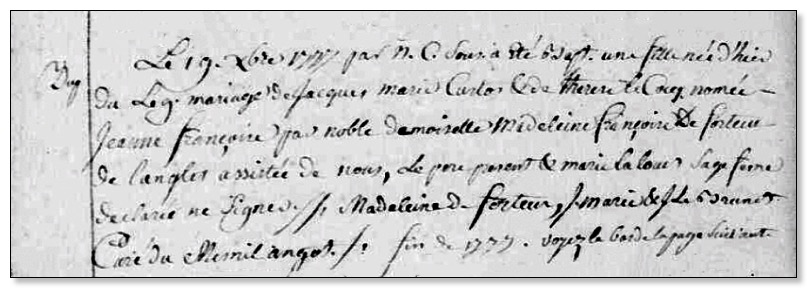 Le 19. Xbre 1777 par N. C. Souss. a été bapt. une fille née d'hier
du Leg. mariage de Jacques marie Carlos & de therese le Cocq nomée
Jeanne françoise par noble demoiselle Madeleine françoise De forteu-
de langles assistée de nous, Le pere present & marie la loue Sage feme
declarée ne Signer /: Madeleine De forteu, J. marie & J. Le
Curé du Mesnil angot /: fin de 1777. voyez le bas de la page Suivante